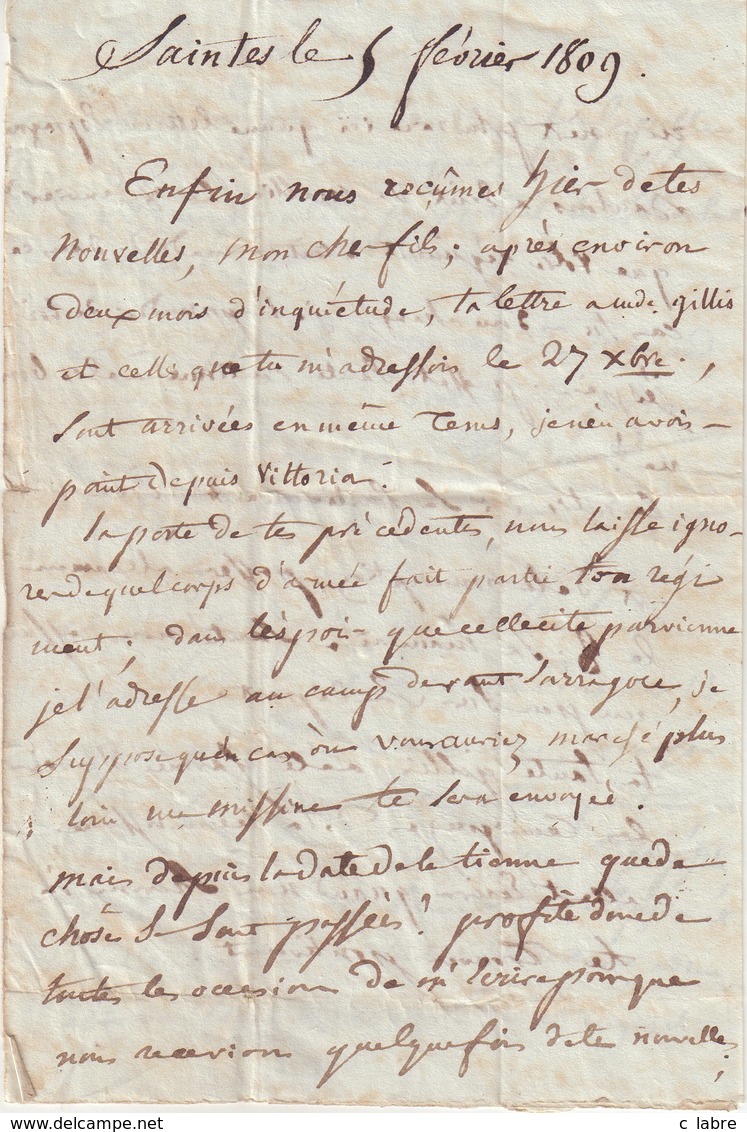 Saintes le 5 février 1809.
Enfin nous reçûmes hier de tes
nouvelles, mon cher fils; après environ
deux mois d'inquiétude, ta lettre a mde. Gillis
et celle que tu m'adressois le 27 xbre.,
sont arrivées en même tems, je n'en avois
point depuis Vittoria.
la perte de tes précédentes, nous laisse igno-
rer de quel corps d'armée fait partie ton régi
ment; dans l'espoir que celle cite parvienne
je l'adresse au camp devant Sarragoce, je
suppose qu'en cas où vous auriez marché plus
loin ma missive te sera envoyée.
mais depuis la date de la tienne que de
choses se sont passées! profite donc de
toutes les occasions de m'écrire pour que
nous recevions quelquefois de te nouvelles;
c labre